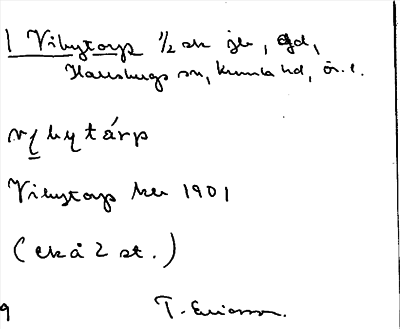 1 Vibytorp ½ sk jb, gd,
Hallsbergs sn, Kumla hd, ör. l.
vi̱bytárp
Vibytorp ka 1901
(ek å 2 st.)
9 T. Ericsson.